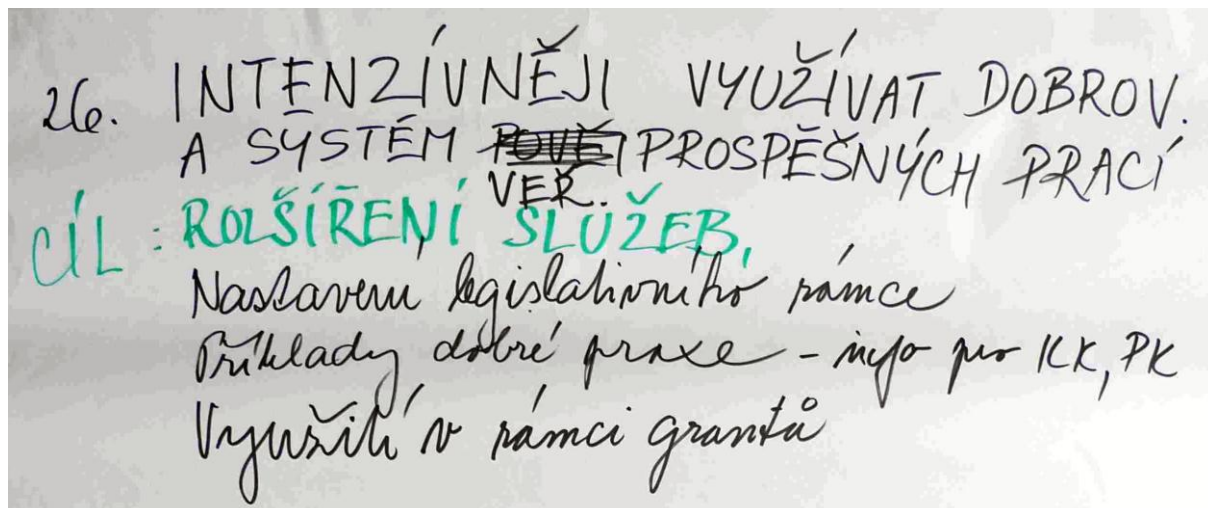 26. INTENZÍVNĚJI VYUŽÍVAT DOBROV.
A SYSTÉM VEŘ. PROSPĚŠNÝCH PRACÍ
CÍL: ROZŠÍŘENÍ SLUŽEB,
Nastavení legislativního rámce
Příklady dobré praxe - info pro KK, PK
Využití v rámci grantů